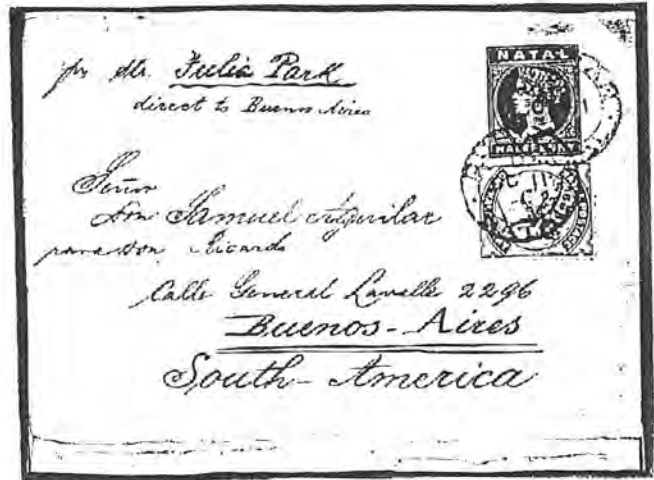 pr Str. Julia Park
direct to Buenos Aires
NATAL
Señor
Don Samuel Aguilar
para Don Ricardo
Calle General Lavalle 2296
Buenos-Aires
South-America